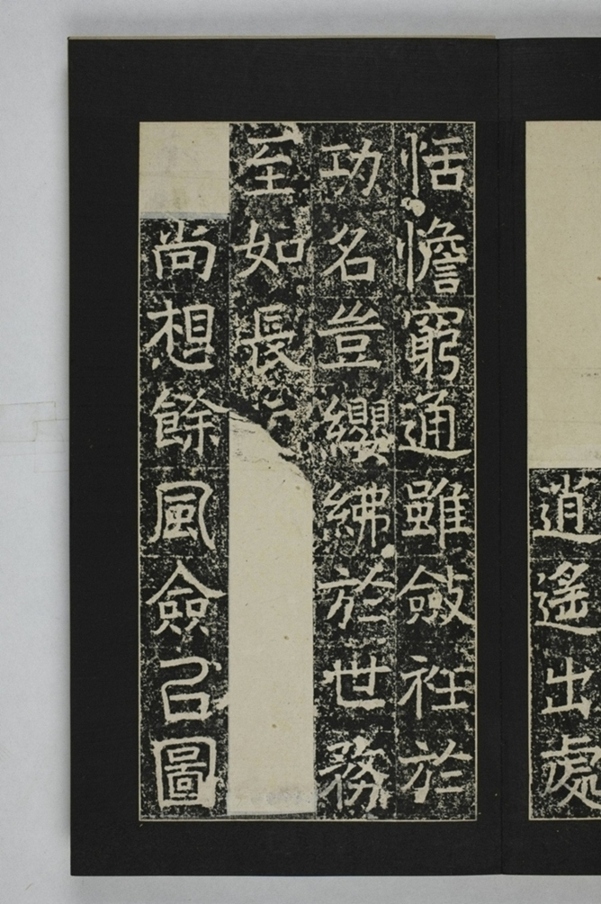 逍遙出處
恬憺窮通雖斂衽於
功名豈纓紼於世務
至如長
尚想餘風僉㠯圖